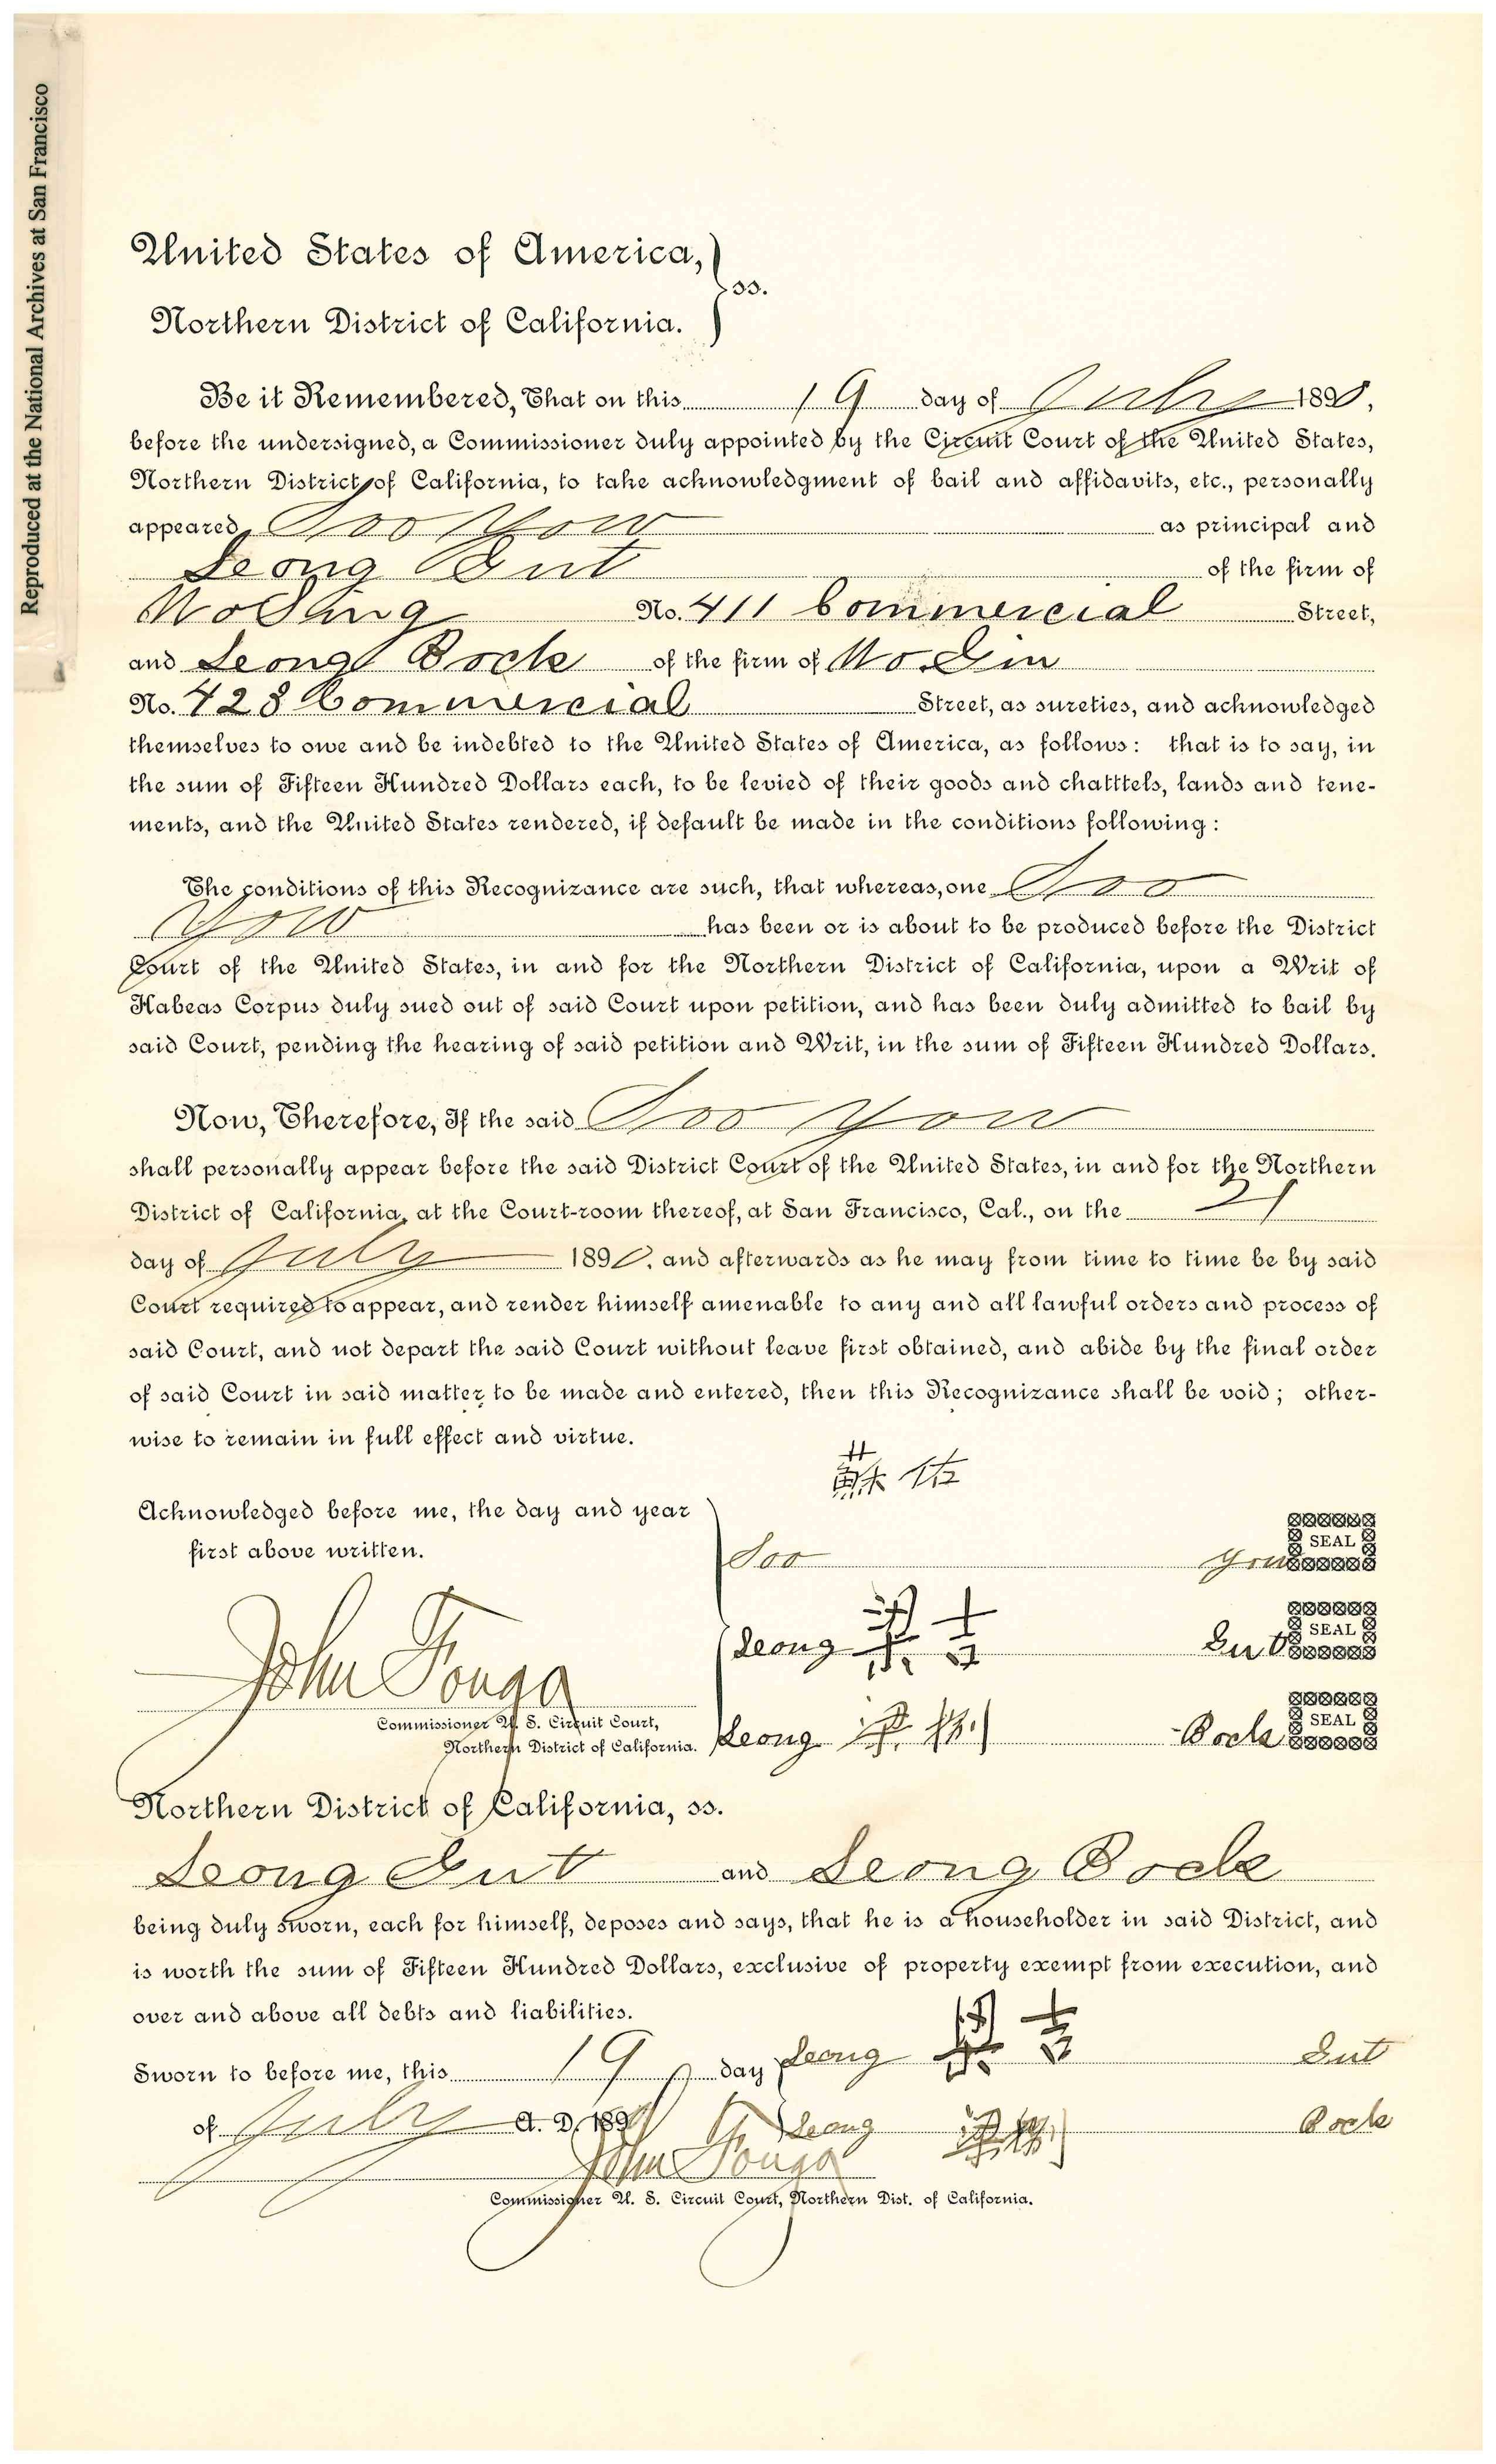 Reproduced at the National Archives at San Francisco
United States of America,
ss.
Northern District of California.
Be it Remembered, That on this 19 day of July 1890,
before the undersigned, a Commissioner duly appointed by the Circuit Court of the United States,
Northern District of California, to take acknowledgment of bail and affidavits, etc., personally
appeared Soo Yow as principal and
Leong Gut of the firm of
Wo Sing No. 411 Commercial Street,
and Leong Bock of the firm of Wo Gin
No. 428 Commercial Street, as sureties, and acknowledged
themselves to owe and be indebted to the United States of America, as follows: that is to say, in
the sum of Fifteen Hundred Dollars each, to be levied of their goods and chatttels, lands and tene-
ments, and the United States rendered, if default be made in the conditions following:
The conditions of this Recognizance are such, that whereas, one Soo
Yow has been or is about to be produced before the District
Court of the United States, in and for the Northern District of California, upon a Writ of
Habeas Corpus duly sued out of said Court upon petition, and has been duly admitted to bail by
said Court, pending the hearing of said petition and Writ, in the sum of Fifteen Hundred Dollars.
Now, Therefore, If the said Soo Yow
shall personally appear before the said District Court of the United States, in and for the Northern
District of California, at the Court-room thereof, at San Francisco, Cal., on the 21
day of July 1890. and afterwards as he may from time to time be by said
Court required to appear, and render himself amenable to any and all lawful orders and process of
said Court, and not depart the said Court without leave first obtained, and abide by the final order
of said Court in said matter to be made and entered, then this Recognizance shall be void; other-
wise to remain in full effect and virtue.
蘇佑
Acknowledged before me, the day and year
first above written.
Soo Yow SEAL
Leong 梁吉 Gut SEAL
John Fouga
Commissioner U. S. Circuit Court,
Northern District of California.
Leong 梁 Bock SEAL
Northern District of California, ss.
Leong Gut and Leong Bock
being duly sworn, each for himself, deposes and says, that he is a householder in said District, and
is worth the sum of Fifteen Hundred Dollars, exclusive of property exempt from execution, and
over and above all debts and liabilities.
Sworn to before me, this 19 day Leong 梁吉 Gut
of July A. D. 1890 Leong 梁 Bock
John Fouga
Commissioner U. S. Circuit Court, Northern Dist. of California.